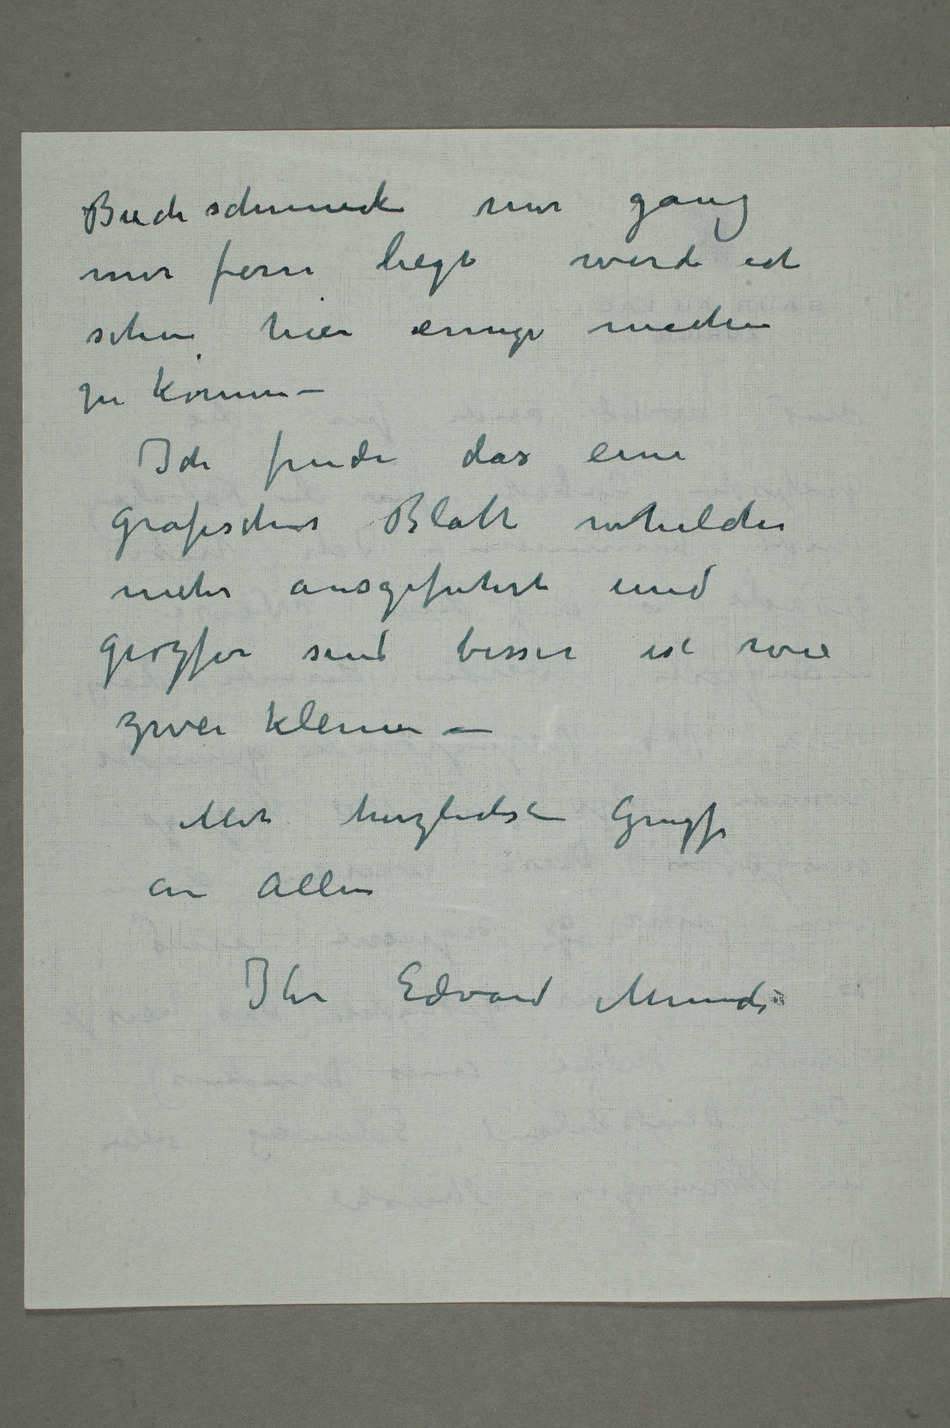 Buchschmuck mir ganz
mir fern liegt werde ich
schon hier einige machen
zu können –
Ich finde das eine
grafisches Blatt
mehr ausgeführt und
grözser sind besser ist wie
zwei kleine –
Mit herzlichste Gruzs
an Allen
Ihr Edvard Munch